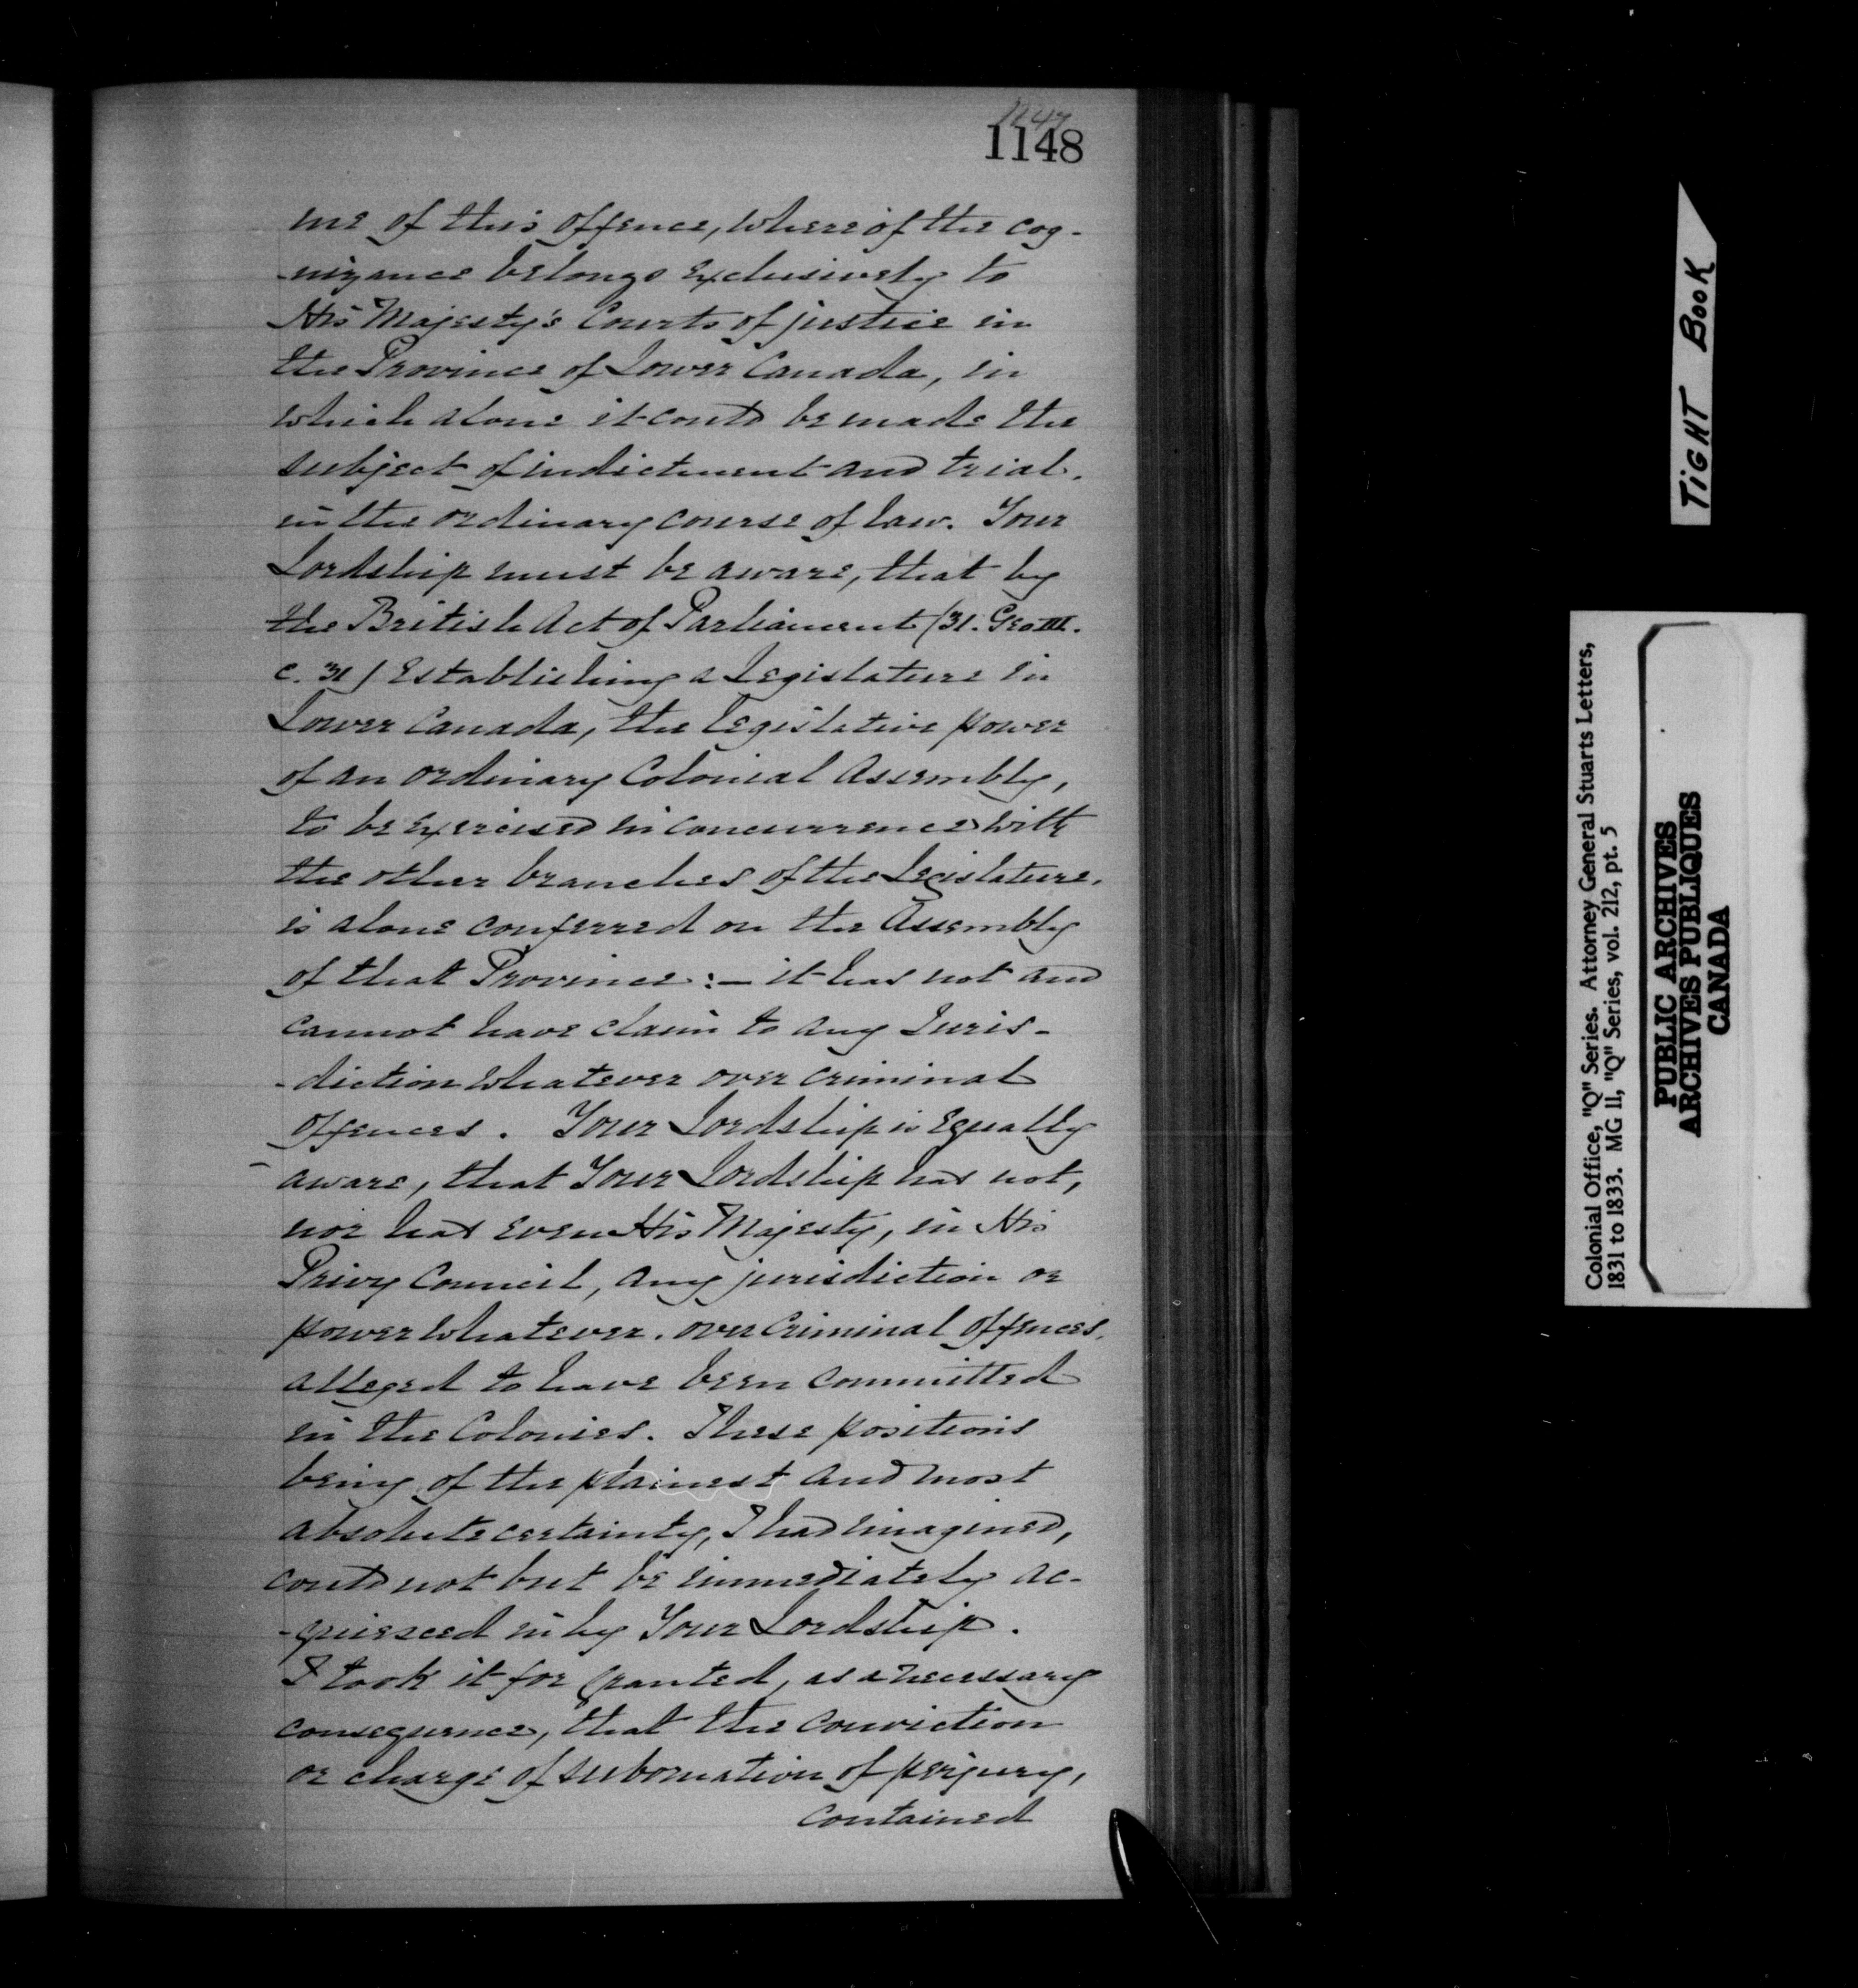 1148
me of this offence, whereof the cog-
-nizance belongs exclusively to
His Majesty's Courts of justice in
the Province of Lower Canada, in
which alone it could be made the
subject of indictment and trial.
in the ordinary course of law. Your
Lordship must be aware, that by
the British Act of Parliament (31. Geo III.
c. 31) establishing a Legislature in
Lower Canada, the legislative power
of an ordinary Colonial Assembly,
to be exercised in concurrence with
the other branches of the Legislature.
is alone conferred on the Assembly
of that Province :— it has not and
cannot have claim to any Juris-
-diction whatever over criminal
offences. Your Lordship is equally
aware, that Your Lordship has not,
nor has even His Majesty, in His
Privy Council, any jurisdiction or
power whatever. over Criminal offences,
alleged to have been committed
in the Colonies. These positions
being of the plainest and most
absolute certainty, I had imagined,
could not but be immediately ac-
-quiesced in by Your Lordship.
I took it for granted, as a necessary
consequence, that the conviction
or charge of subornation of perjury,
contained
TIGHT BOOK
Colonial Office, "Q" Series. Attorney General Stuarts Letters,
1831 to 1833. MG 11, "Q" Series, vol. 212, pt. 5
PUBLIC ARCHIVES
ARCHIVES PUBLIQUES
CANADA